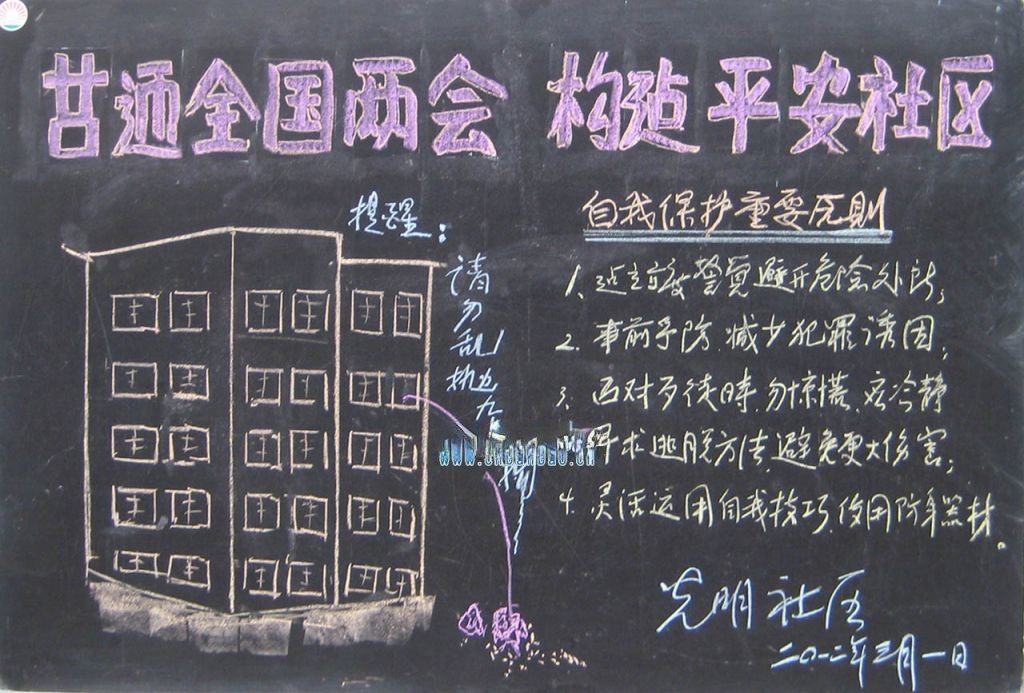 喜迎全国两会 构造平安社区
提醒:
请勿乱
自我保护重要原则
1、 警觉避开危险处所;
2. 事前予防 减少犯罪诱因;
3、面对歹徒時、勿惊慌、应冷静
寻求逃脱方法、避免更大伤害;
4. 灵活运用自我技巧、使用防身器材。
光明社区
二〇一二年三月一日